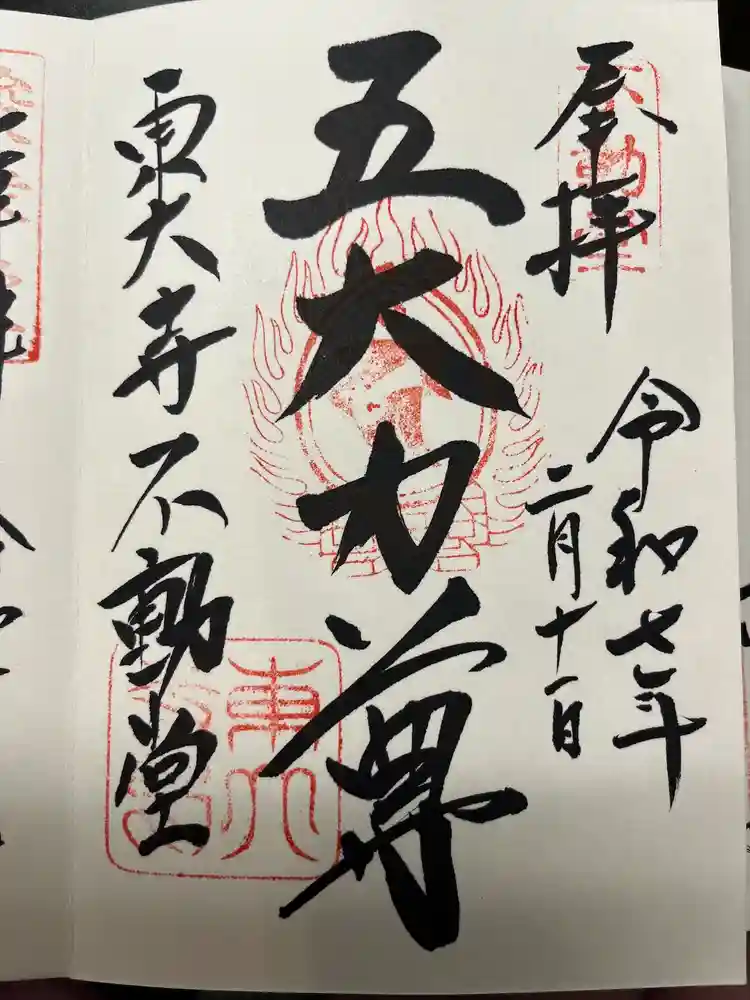 奉拝
不動堂
令和七年
二月十一日
五大力尊
東大寺不動堂